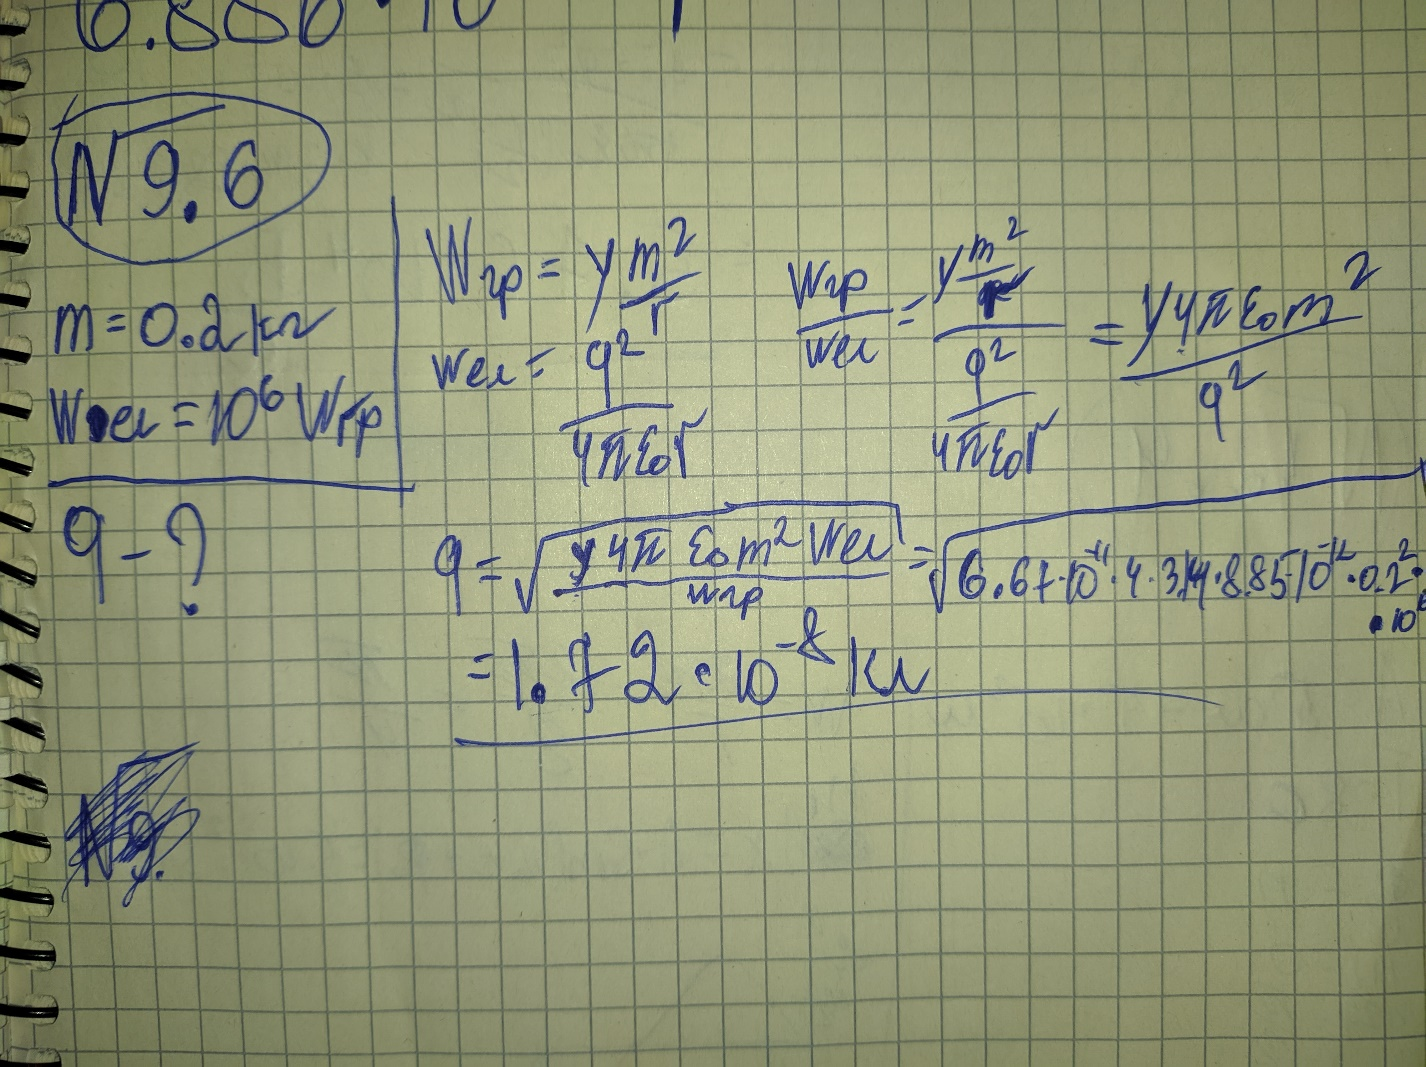 6.886 · 10
N 9.6
m = 0.2 кг
Wел = 10⁶ Wгр
q - ?
Wгр = γ m²/r
Wел = q²/(4πε₀r)
Wгр/Wел = (γ m²/r)/(q²/(4πε₀r)) = γ4πε₀m²/q²
q = √(γ4πε₀m²Wел/Wгр) = √(6.67·10⁻¹¹·4·3.14·8.85·10⁻¹²·0.2²·
·10⁶
= 1.72 · 10⁻⁸ Кл
N9.